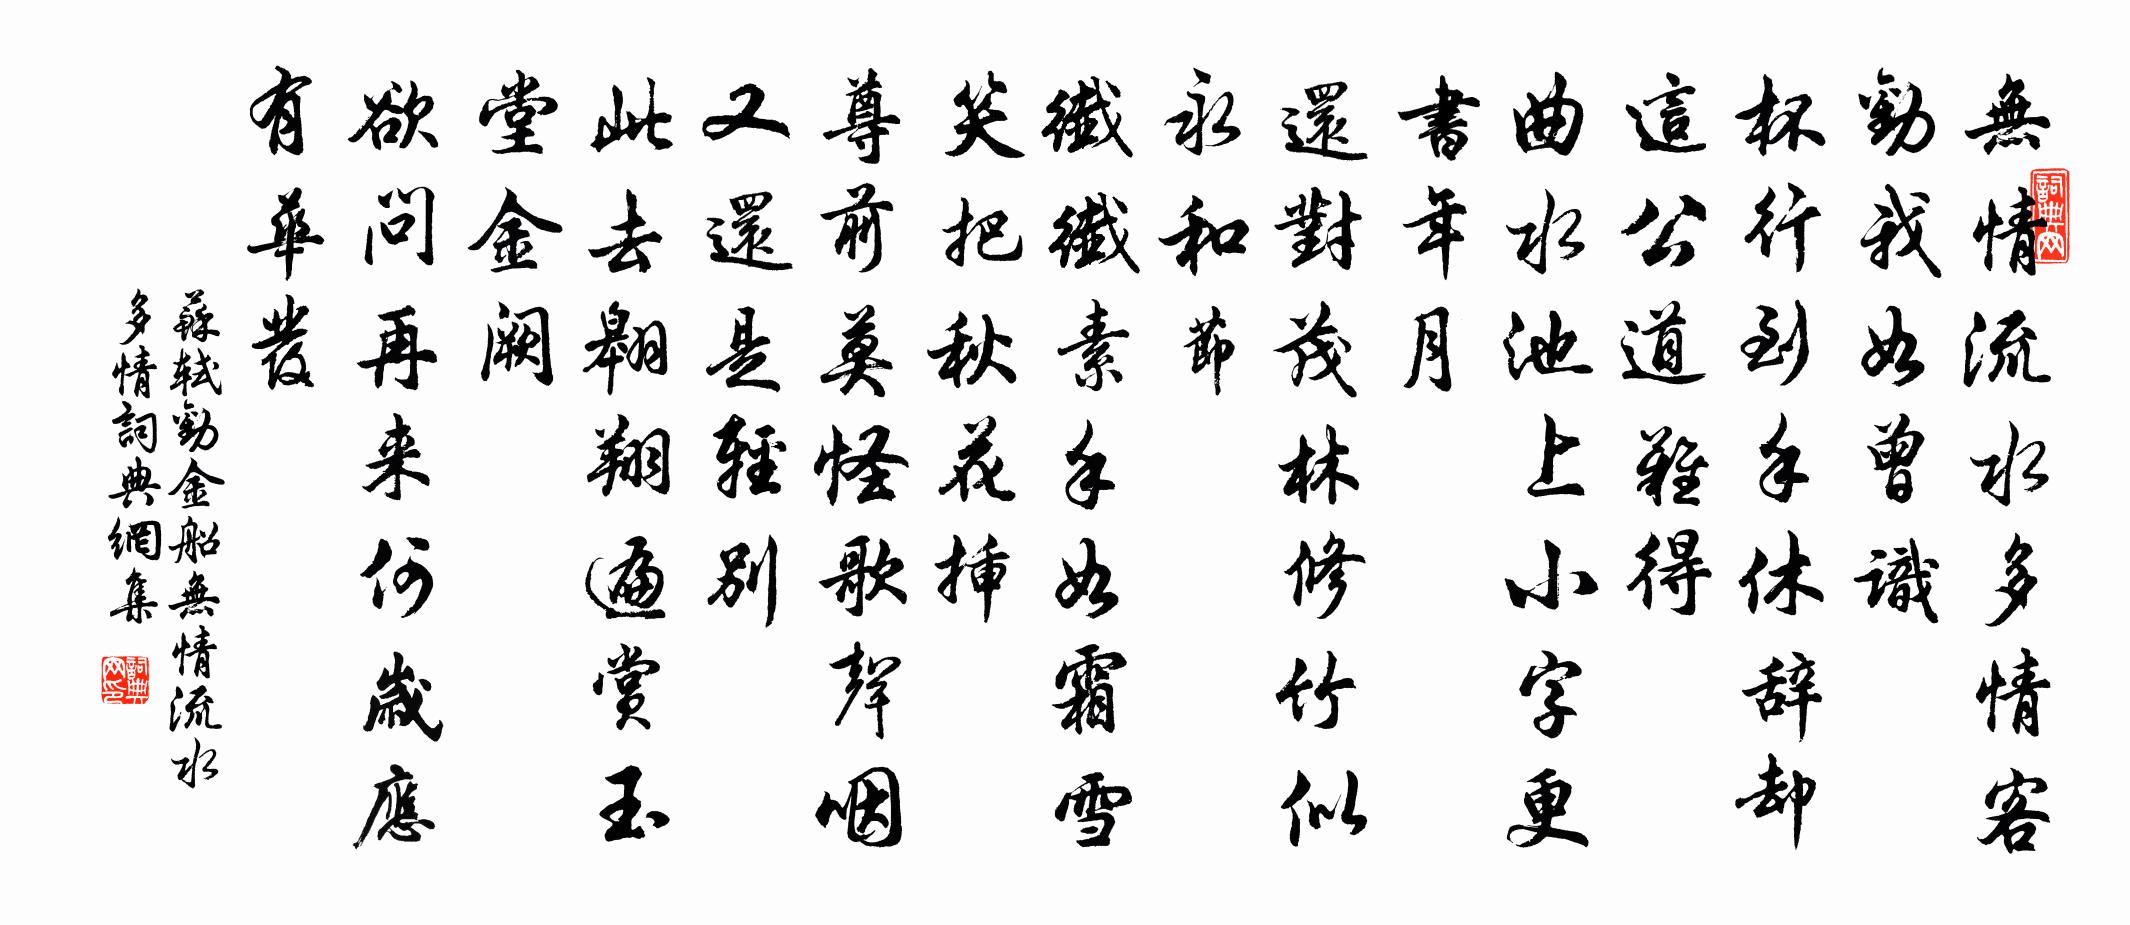 無情流水多情客
勸我如曾識
杯行到手休辞却
這公道難得
曲水池上小字更
書年月
還對茂林修竹似
永和節
纖纖素手如霜雪
笑把秋花插
尊前莫怪歌聲咽
又還是輕別
此去翱翔遍賞玉
堂金闕
欲問再来何歲應
有華髮
蘇軾勸金船無情流水
多情詞典網集
詞典网
詞典网印